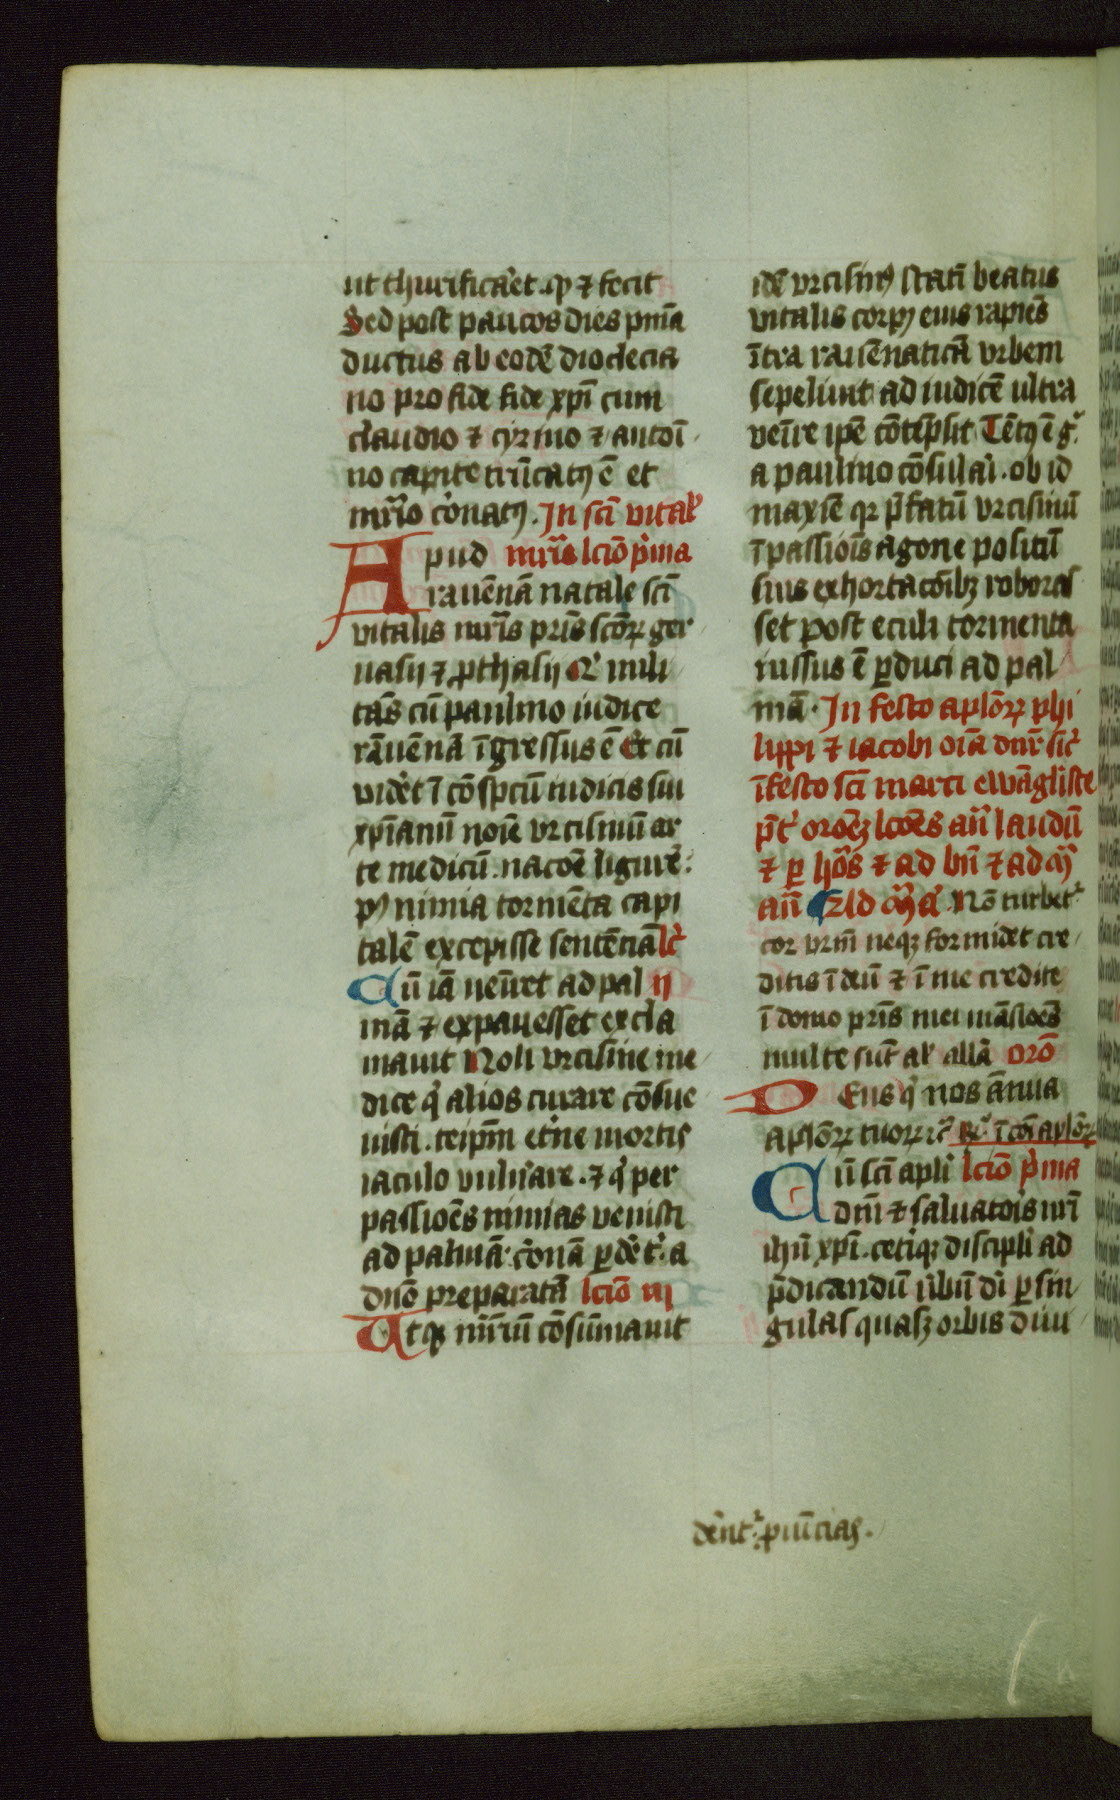 ut thurificar̉et. qd̛ ⁊ fecit
Sed post paucos dies pm̄a
ductus ab eodē dioclecia
no pro fide fide xp̄i cum
claudio ⁊ cyrino ⁊ antōī
no capite trūcatꝰ ē et
mr̄io corōnatꝰ. In sc̄i vital̕
Apud mr̄is lc̄io prima
rauēnā natale sc̄i
vitalis mr̄is pr̄is sc̄oꝝ ger
uasij ⁊ ꝓthasij Qͥ mili
tās cū paulino iudice
rāuēnā īgressus ē Et cū
vider̉t ī cōspc̄tū iudicis sui
xp̄ianū noīe vrcisinū ar
te medicū. nacōe ligurē.
pꝰ nimia tormēta capi
talē excepisse sentēciā lc̄
Cū iā uenr̄et ad pal ij
mā ⁊ expauesset excla
mauit Noli vrcisine me
dice qͥ alios curare cōsue
uisti. teip̄m et̉ne mortis
iaculo vuln̉are. ⁊ qͥ per
passioēs nimias venisti
ad palmā. cōronā ꝑder̉. t̉ a
dn̄o preparatā lc̄io iij
Atqꝫ mr̄iū cōsūmauit
idē vrcisinꝰ statī beatus
vitalis corpꝰ eius rapiēs
ītra rauēnaticā vrbem
sepeliuit ad iudicē ultra
uenīre ip̄e cōtēpsit Tētꝰ ē gͦ.
a paulino cōsulari. ob id
maxīe qr p̄fatū vrcisinū
ī passiōis agone positū
suis exhortacōibꝫ roboras
set Post eculi tormenta
iussus ē ꝑduci ad pal
mā. In festo aplōꝝ phi
lippi ⁊ iacobi oīa dn̄r sic̄
ī festo sc̄i marci ewāgliste
p̄t̉ orōeꝫ lc̄oēs an̄ laudū
⁊ ꝑ hōs ⁊ ad bn̄ ⁊ ad mͣ
an̄ Ad mͣ a Nō turbet͛
cor vrm̄ neqꝫ formidet cre
ditis ī deū ⁊ ī me credite
ī domo pr̄is mei māsioēs
multe sūt al̕ allā orō
Deus qͥ nos ānua
aplōꝝ tuoꝝ ⁊c̄ Rͥ ī cōi aplōꝝ
Cū sc̄i apli lc̄io p̉ma
dn̄i ⁊ saluatoīs nr̄i
ihū xp̄i. cet̉iqꝫ discipli ad
p̄dicandū ūbū dī ꝑ sin
gulas quasqꝫ orbis diui
den̄t͛. ꝓuīcias.